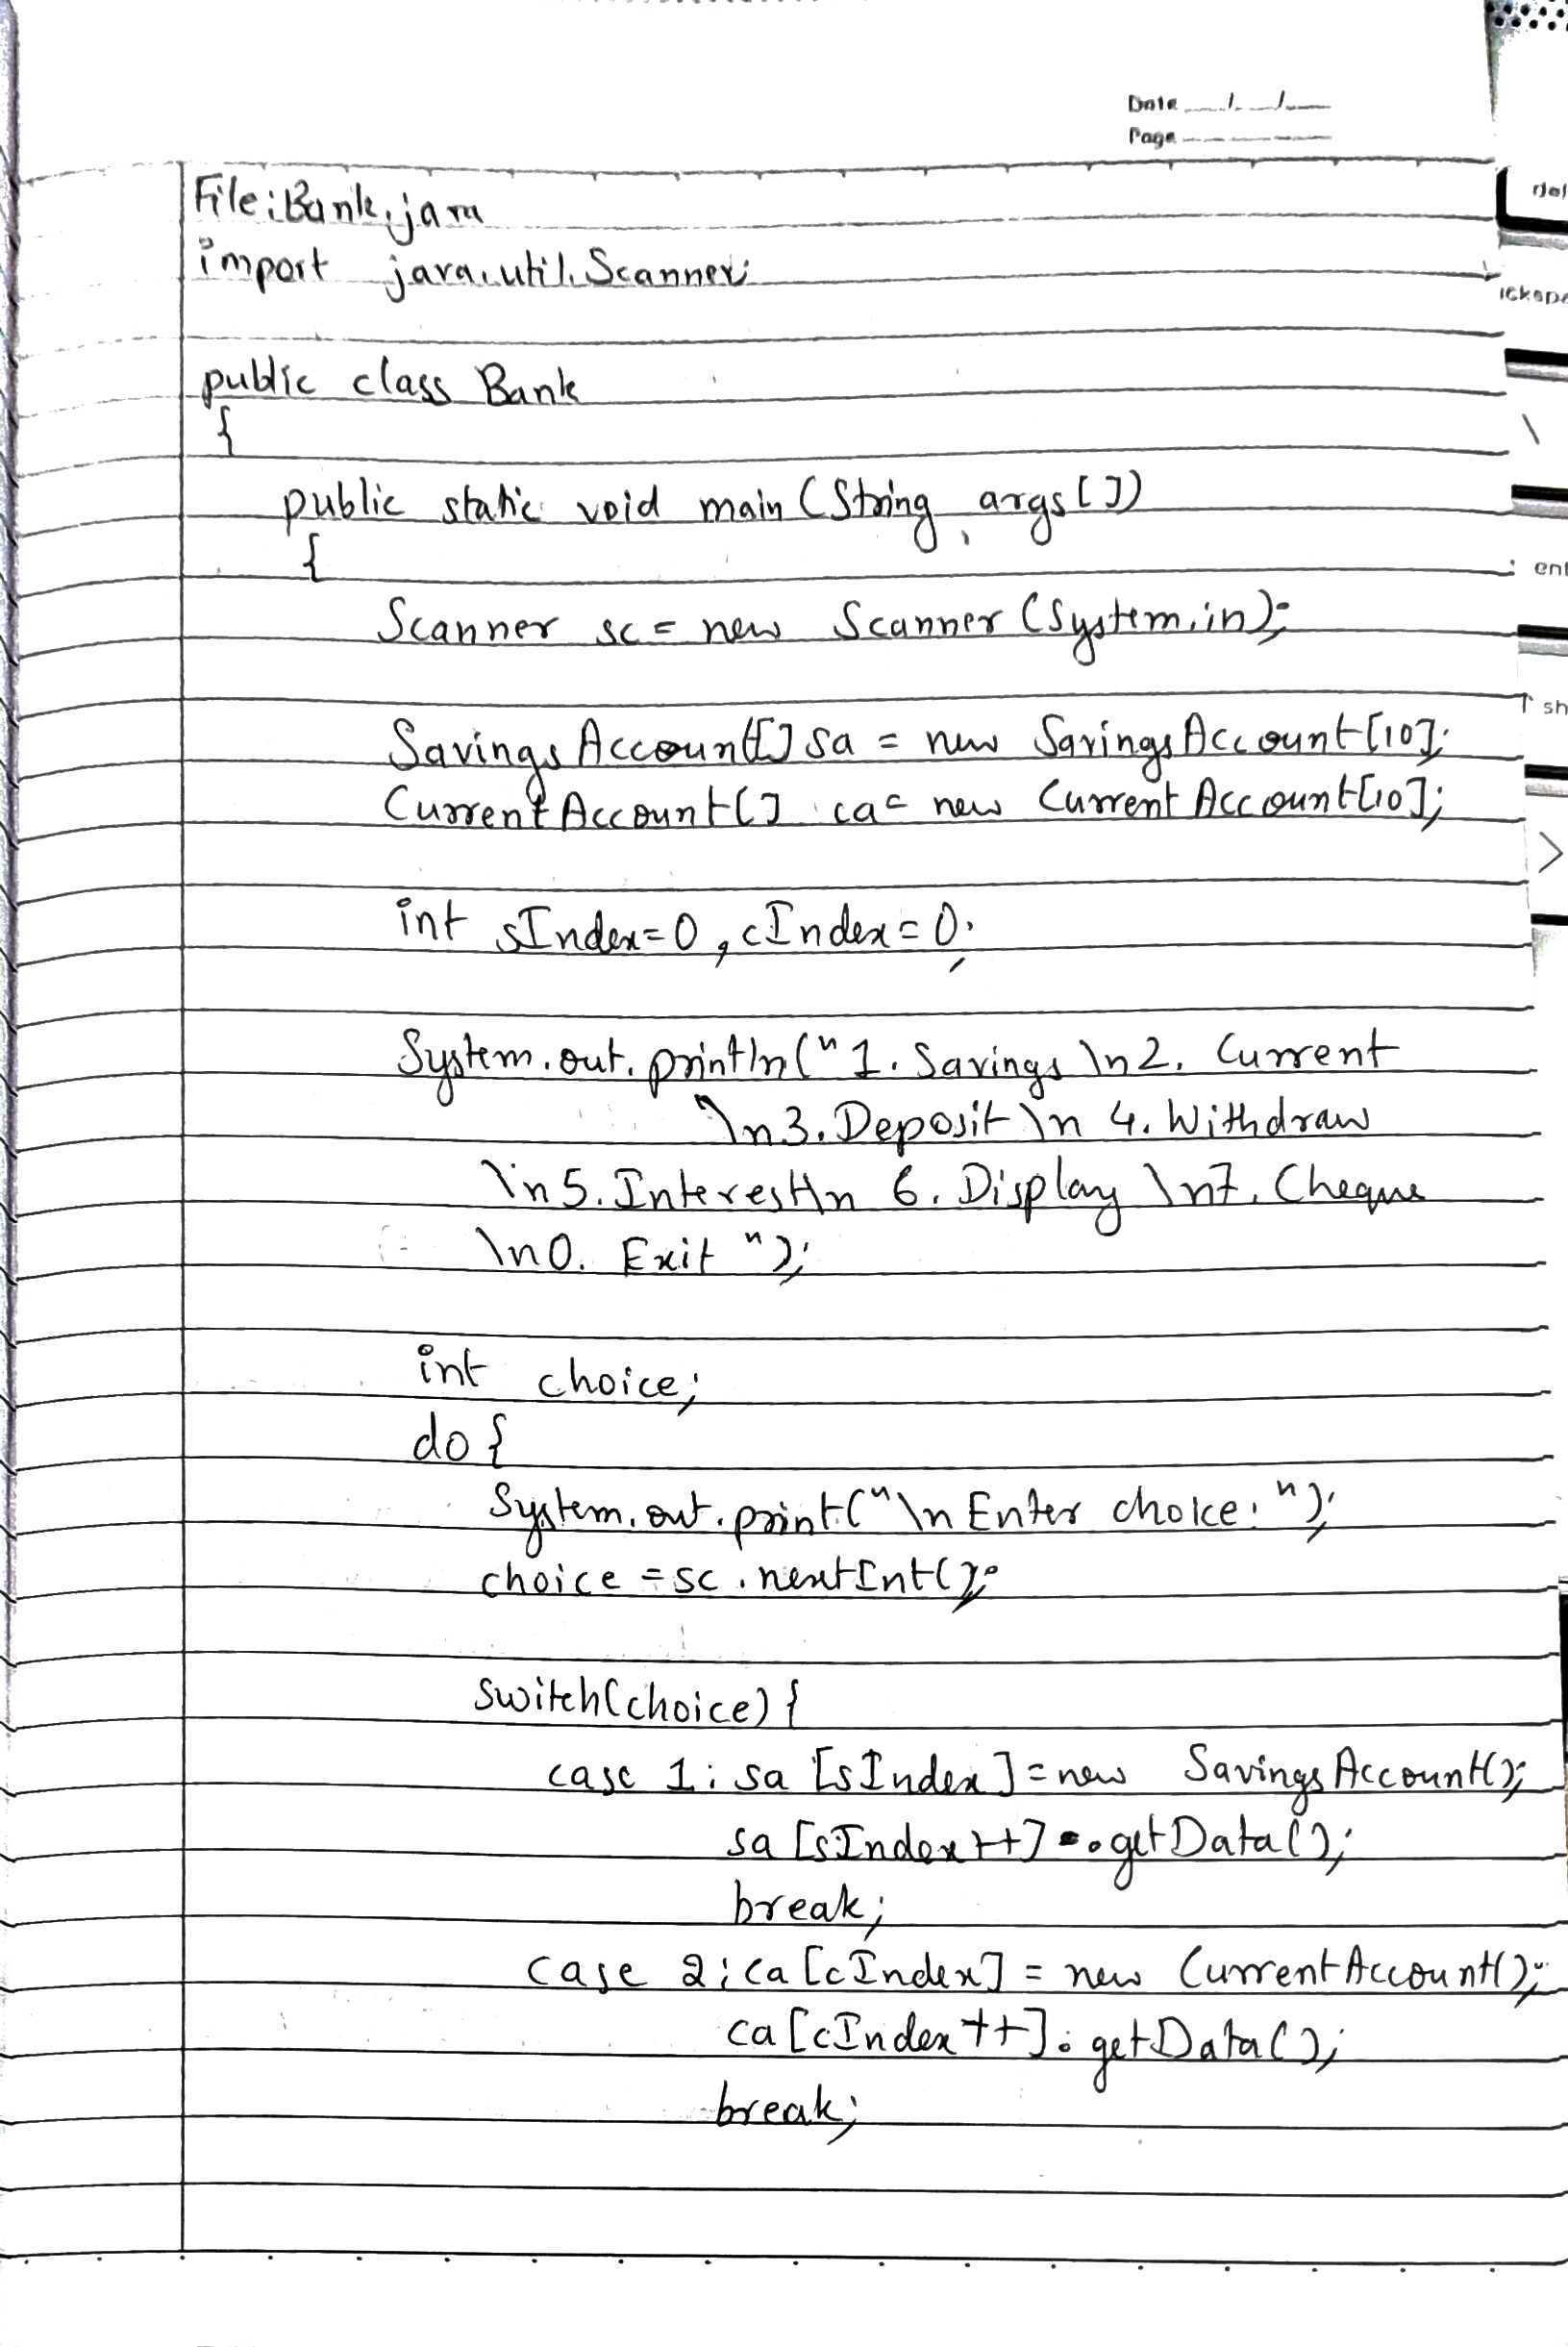 Date
Page
File: Bank.java
import java.util.Scanner;
public class Bank
{
public static void main (String args[])
{
Scanner sc = new Scanner (System.in);
SavingsAccount[] sa = new SavingsAccount[10];
CurrentAccount[] ca = new CurrentAccount[10];
int sIndex=0, cIndex=0;
System.out.println("1. Savings \n2. Current
\n3. Deposit \n 4. Withdraw
\n5. Interest\n 6. Display \n7. Cheque
\n0. Exit ");
int choice;
do {
System.out.print("\n Enter choice: ");
choice = sc.nextInt();
switch(choice) {
case 1: sa [sIndex] = new SavingsAccount();
sa [sIndex++].getData();
break;
case 2: ca [cIndex] = new CurrentAccount();
ca [cIndex++].getData();
break;
ent
sh